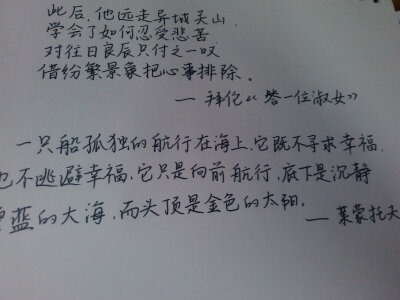 此后,他远走异域关山,
学会了如何忍受悲苦
对往日良辰只付之一叹
借纷繁景象把心事排除。
—拜伦《答一位淑女》
一只船孤独的航行在海上,它既不寻求幸福,
也不逃避幸福,它只是向前航行,底下是沉静
碧蓝的大海,而头顶是金色的太阳.
—莱蒙托夫